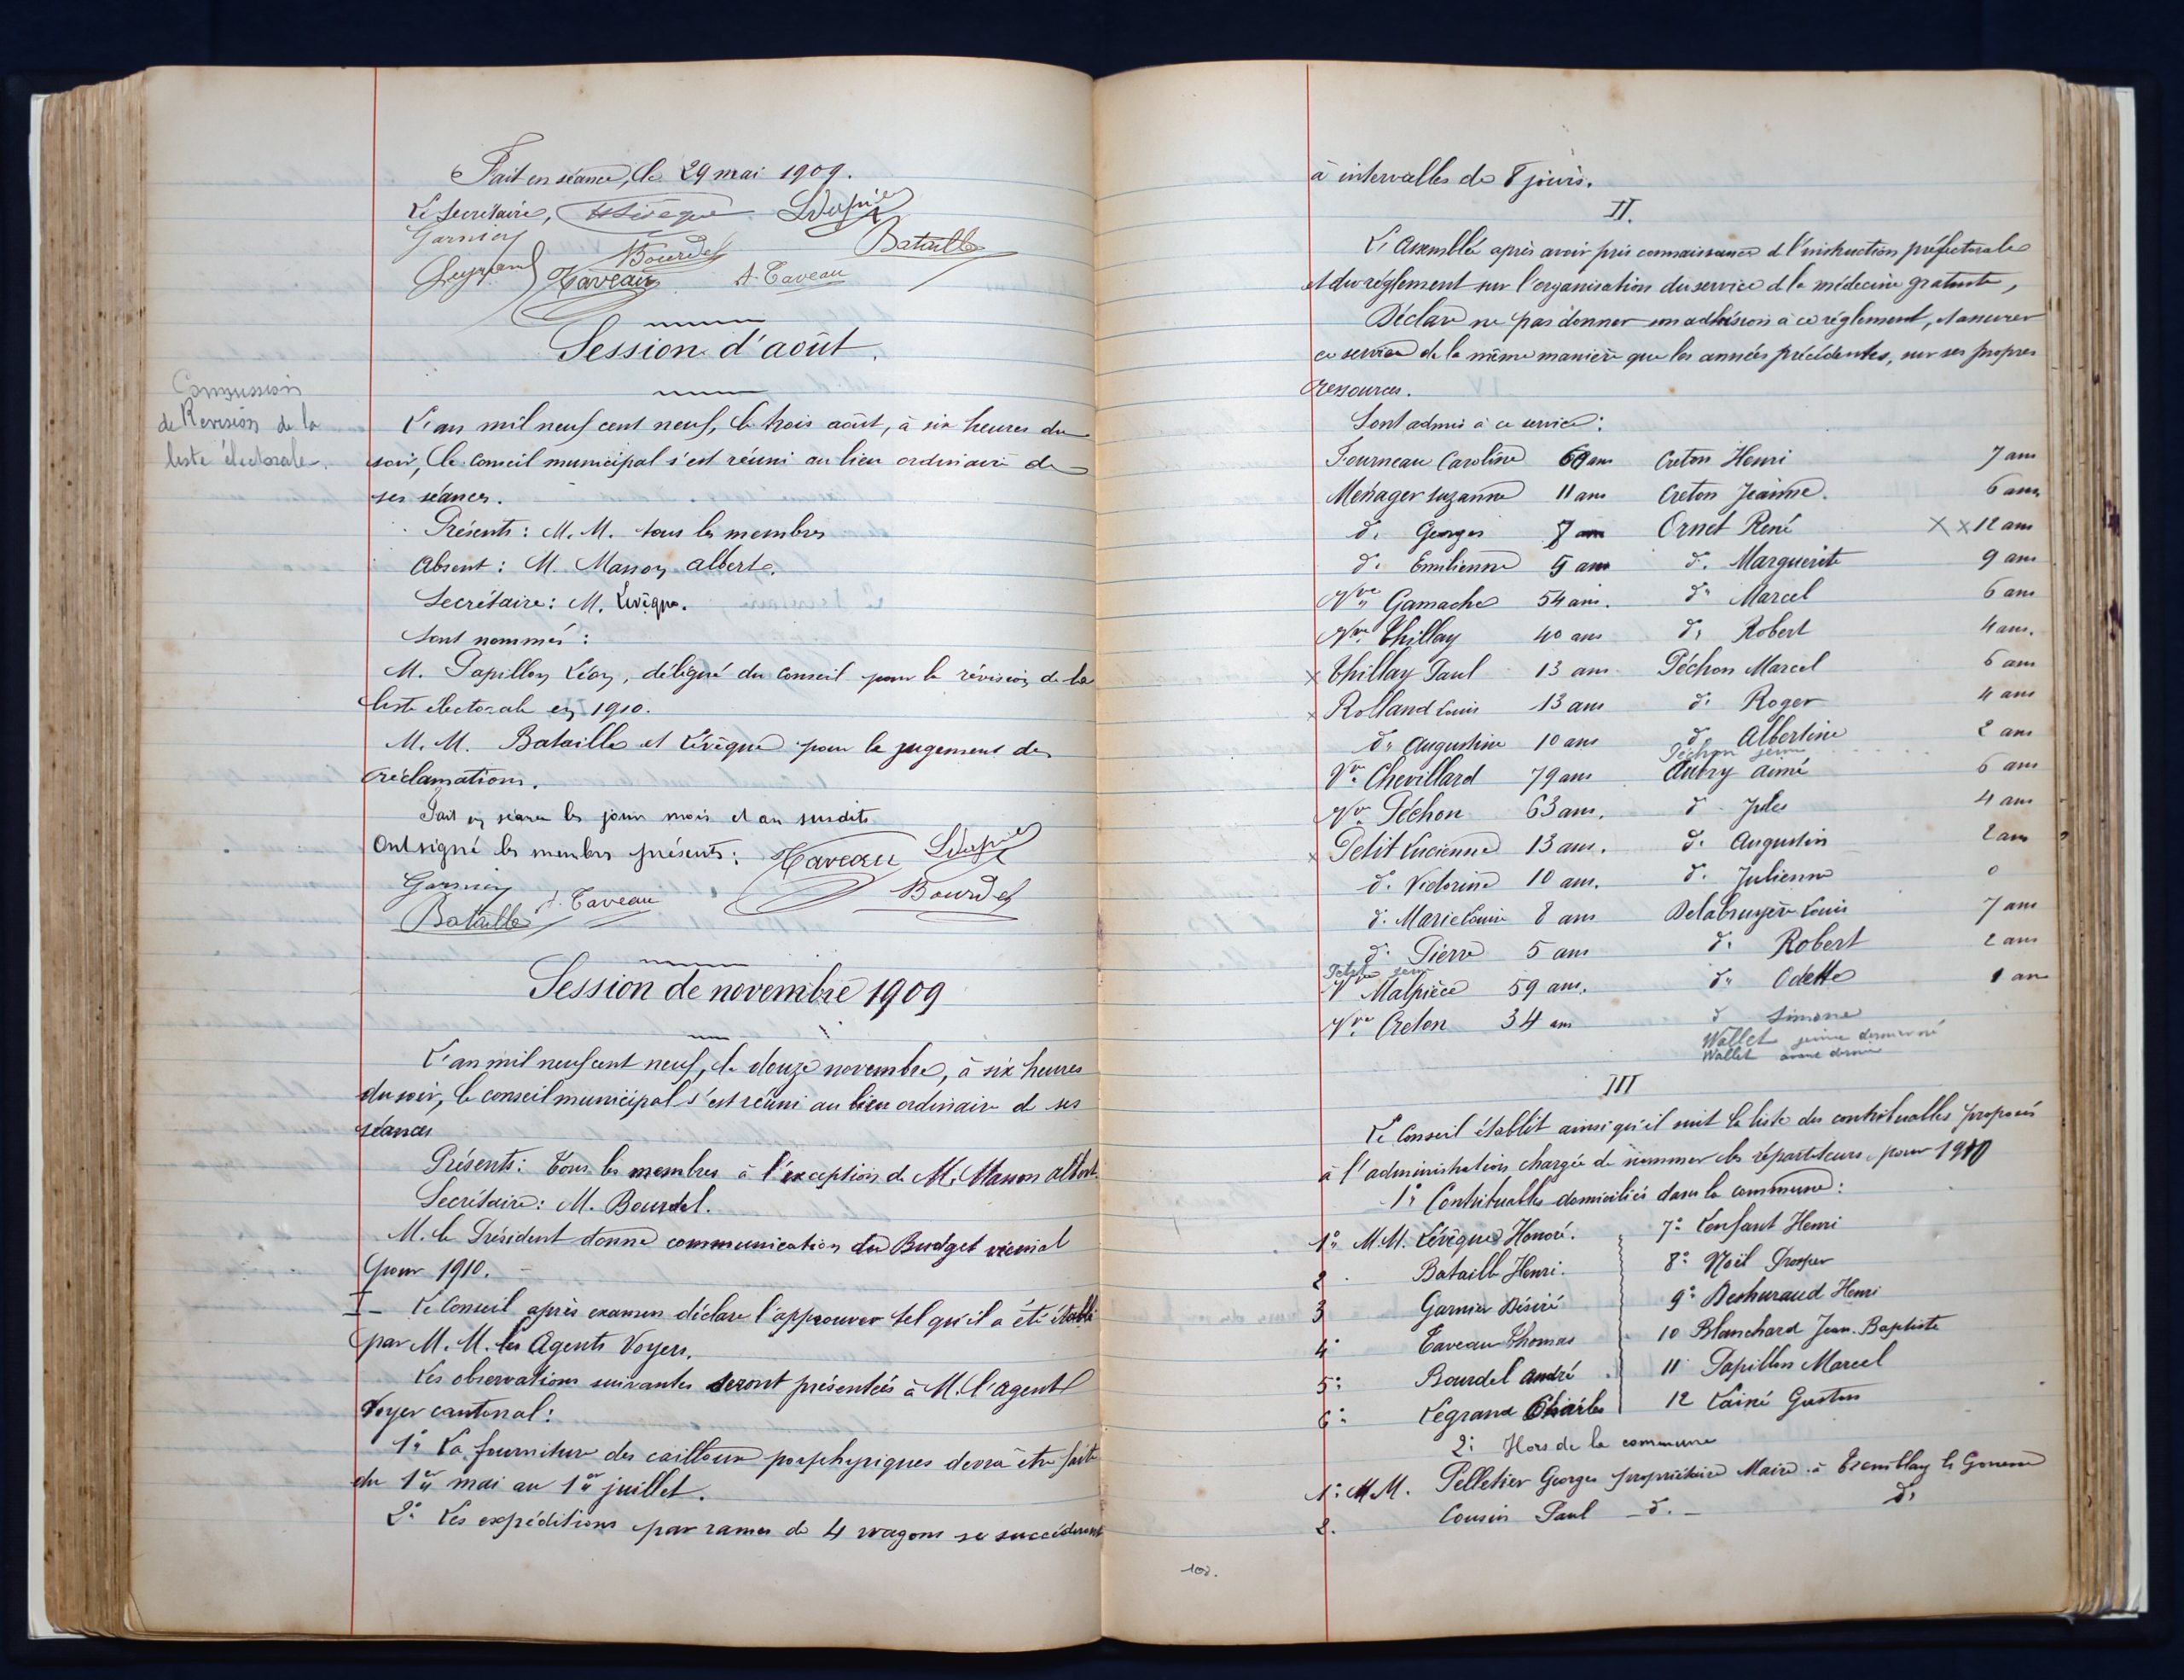 Fait en séance, le 29 mai 1909.
Le Secrétaire, HLévêque
Garnier
Bourdel Bataille
Taveau A. Taveau
Session d'août.
Commission
de Revision de la
liste électorale.
L'an mil neuf cent neuf, le trois août, à six heures du
soir, le conseil municipal s'est réuni au lieu ordinaire de
ses séances.
Présents : M. M. tous les membres
Absent : M. Masson Albert.
Secrétaire : M. Lévêque.
Sont nommés :
M. Papillon Léon, délégué du conseil pour la révision de la
liste électorale en 1910.
M. M. Bataille et Lévêque pour le jugement des
réclamations.
Fait en séance les jour mois et an susdits
Ont signé les membres présents : Taveau
Garnier A. Taveau Bourdel
Bataille
Session de novembre 1909
L'an mil neuf cent neuf, le douze novembre, à six heures
du soir, le conseil municipal s'est réuni au lieu ordinaire de ses
séances
Présents : Tous les membres à l'exception de M. Masson Albert.
Secrétaire : M. Bourdel.
M. le Président donne communication du Budget vicinal
pour 1910. -
I - Le Conseil après examen déclare l'approuver tel qu'il a été établi
par M. M. les Agents Voyers.
Les observations suivantes seront présentées à M. l'agent
Voyer cantonal :
1° La fourniture des cailloux porphyriques devra être faite
du 1er mai au 1er juillet.
2° Les expéditions par rames de 4 wagons se succéderont
à intervalles de 8 jours.
II.
L'Assemblée après avoir pris connaissance de l'instruction préfectorale
et du réglement sur l'organisation du service de la médecine gratuite,
Déclare ne pas donner son adhésion à ce réglement, et assurer
ce service de la même manière que les années précédentes, sur ses propres
ressources.
Sont admis à ce service :
Fourneau Caroline 60 ans Creton Henri 7 ans
Ménager Suzanne 11 ans Creton Jeanne. 6 ans
d° Georges 7 ans Ornet René X x 12 ans
d° Emilienne 5 ans d° Marguerite 9 ans
Vve Gamache 54 ans. d° Marcel 6 ans
Vve Thillay 40 ans d° Robert 4 ans.
x Thillay Paul 13 ans Péchon Marcel 6 ans
x Rolland Louis 13 ans d° Roger 4 ans
d° Augustine 10 ans d° Albertine 2 ans
Péchon
Vve Chevillard 79 ans Autry Aimé 6 ans
Vve Péchon 63 ans. d° Jules 4 ans
x Petit Lucienne 13 ans. d° Augustin 2 ans
d° Victorine 10 ans. d° Julienne 0
d° Marie Louise 8 ans Delabruyère Louis 7 ans
d° Pierre 5 ans d° Robert 2 ans
Petit
Vve Malpièce 59 ans. d° Odette 1 an
Vve Creton 34 ans d° Simone
Wallet jeune dernier né
Wallet
III
Le Conseil établit ainsi qu'il suit la liste des contribuables proposés
à l'administration chargée de nommer les répartiteurs pour 1910
1° Contribuables domiciliés dans la commune :
1° M.M. Lévêque Honoré. 7° Lenfant Henri
2 Bataille Henri. 8° Noël Prosper
3 Garnier Désiré 9° Henri
4° Taveau Thomas 10 Blanchard Jean-Baptiste
5° Bourdel André 11 Papillon Marcel
6° Legrand Charles 12 Lainé Gaston
2° Hors de la commune
1° M.M. Pelletier Georges propriétaire Maire à Tremblay le
2. Cousin Paul - d° - d°
108.